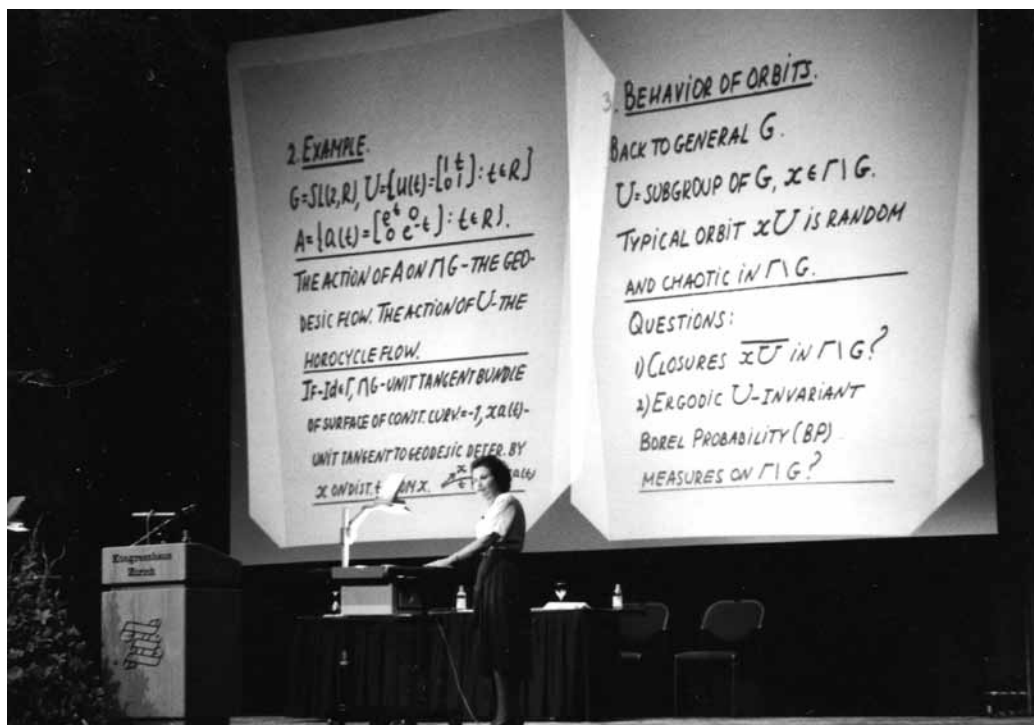 2. EXAMPLE.
G=SL(2,R), U={U(t)=[1 t
0 1]: t∈R}
A={a(t)=[e^t 0
0 e^-t]: t∈R}.
THE ACTION OF A ON Γ\G-THE GEO-
DESIC FLOW. THE ACTION OF U-THE
HOROCYCLE FLOW.
IF -Id∈Γ, Γ\G-UNIT TANGENT BUNDLE
OF SURFACE OF CONST. CURV.=-1, xa(t)-
UNIT TANGENT TO GEODESIC DETER. BY
x ON DIST. t x. x t a(t)
3. BEHAVIOR OF ORBITS.
BACK TO GENERAL G.
U=SUBGROUP OF G, x∈Γ\G.
TYPICAL ORBIT xU IS RANDOM
AND CHAOTIC IN Γ\G.
QUESTIONS:
1) CLOSURES x̅U̅ IN Γ\G?
2) ERGODIC U-INVARIANT
BOREL PROBABILITY (BP)
MEASURES ON Γ\G?
Kongresshaus
Zürich